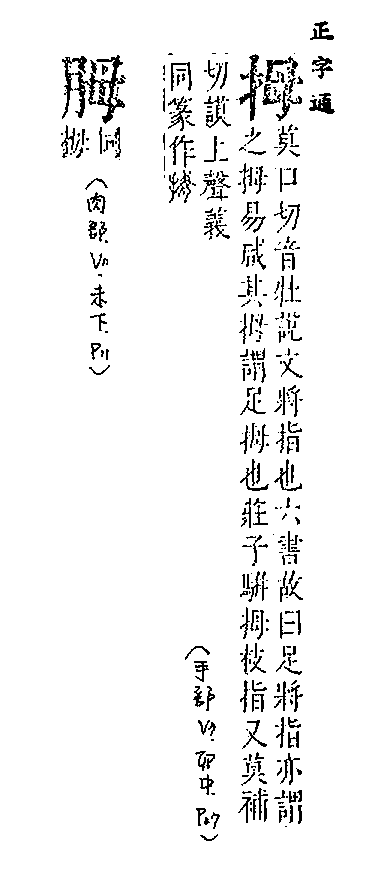 正字通
拇 莫口切音牡說文將指也六書故曰足將指亦謂
之拇易咸其拇謂足拇也莊子駢拇枝指又莫補
切謨上聲義
同篆作𢱭
(手部 V7. 卯中. P27)
胟 同
拇
(肉部 V9. 未下. P11)